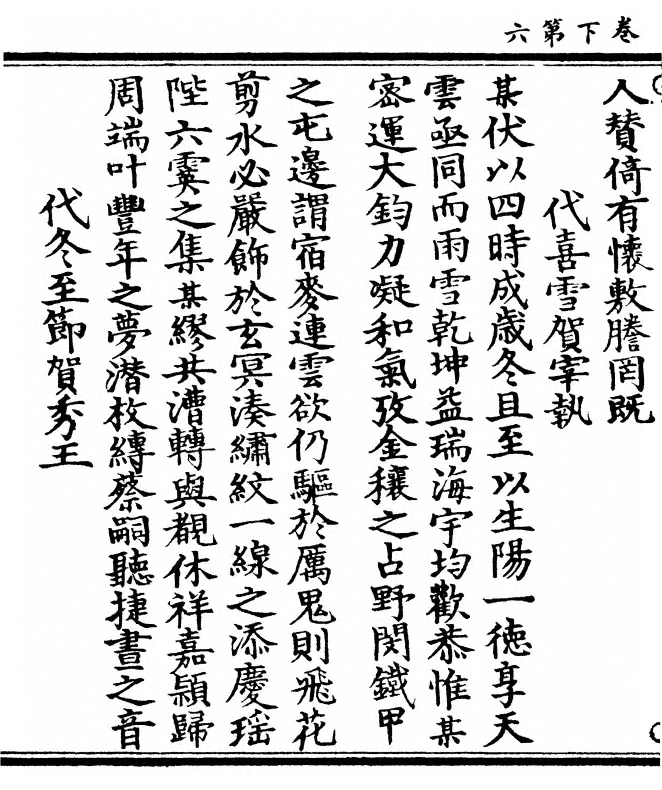 卷下第六
人贊倚有懷敷謄罔既
代喜雪賀宰執
某伏以四時成歲冬且至以生陽一德享天
雲亟同而雨雪乾坤益瑞海宇均歡恭惟某
密運大鈞力凝和氣攷金穰之占野閔鐵甲
之屯邊謂宿麥連雲欲仍驅於厲鬼則飛花
剪水必嚴飾於玄冥湊繡紋一線之添慶瑶
陛六霙之集某繆共漕轉與覩休祥嘉穎歸
周端叶豐年之夢潜枚縳蔡嗣聽捷書之音
代冬至節賀秀王